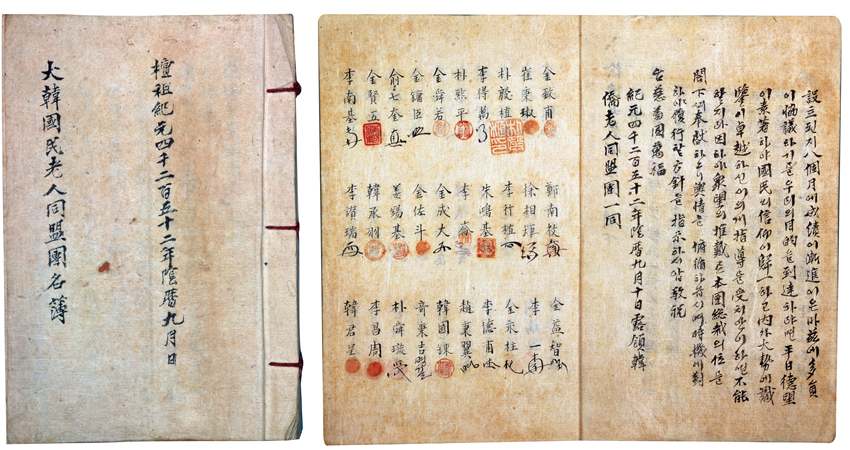 檀祖紀元四千二百五十二年陰曆九月 日
大韓國民老人同盟團名簿
設立된지八個月에成績이漸進이온바玆에多員
이協議하기를우리의目的을到達하랴면平日德望
이素著하야國民의信仰이歸一하고內外大勢에識
鑒이卓越하신이의게指導를受치아니하면不能
할지라因하야衆望의推戴로本團總裁의位를
閤下께奉獻하오니輿情을俯循하옵시며時機에對
하야履行할方針을指示하시압敬祝
台慈 國萬福
紀元四千二百五十二年陰曆九月十日露領韓
僑老人同盟團一同
金敎甫
崔秉
朴殷植
李得萬
朴熙平
金舜若
金鏞臣
兪七奎
金賢五
李南基
鄭南牧
徐相矩
李行植
朱鳴基
李
金成大
金佐斗
姜錫基
韓承羽
李瑞
金益智
李一
金永柱
李德甫
趙秉翼
韓國鍊
奇秉吉
朴舜璇
李昌周
韓君星